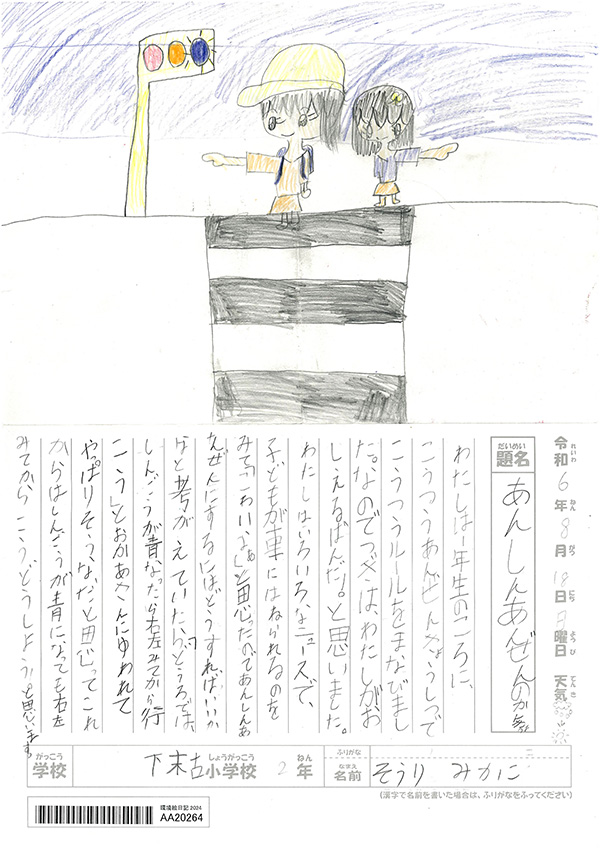 令和6年8月18日日曜日 天気
れいわ ねん がつ にち ようび てんき
だいめい
題名 あんしんあんぜんのかぎ
わたしは1年生のころに、
こうつうあんぜんきょうしつで
こうつうルールをまなびまし
た。なのでつぎは、わたしがお
しえるばんだ!。と思いました。
わたしはいろいろなニュースで、
子どもが車にはねられるのを
みて「こわいよぉ」と思ったのであんしんあ
ぜんにするにはどうすればいいか
なと考がえていたら、「どうろでは、
しんごうが青なったら右左みてから行
こう」とおかあさんにゆわれて
やっぱりそうなだと思ってこれ
からはしんごうが青になっても右左
みてからこうどうしようと思います。
がっこう しょうがっこう ねん ふりがな
学校 下末吉小学校 2年
なまえ
名前 そうり みかに
(漢字で名前を書いた場合は、ふりがなをふってください)
環境絵日記2024
AA20264